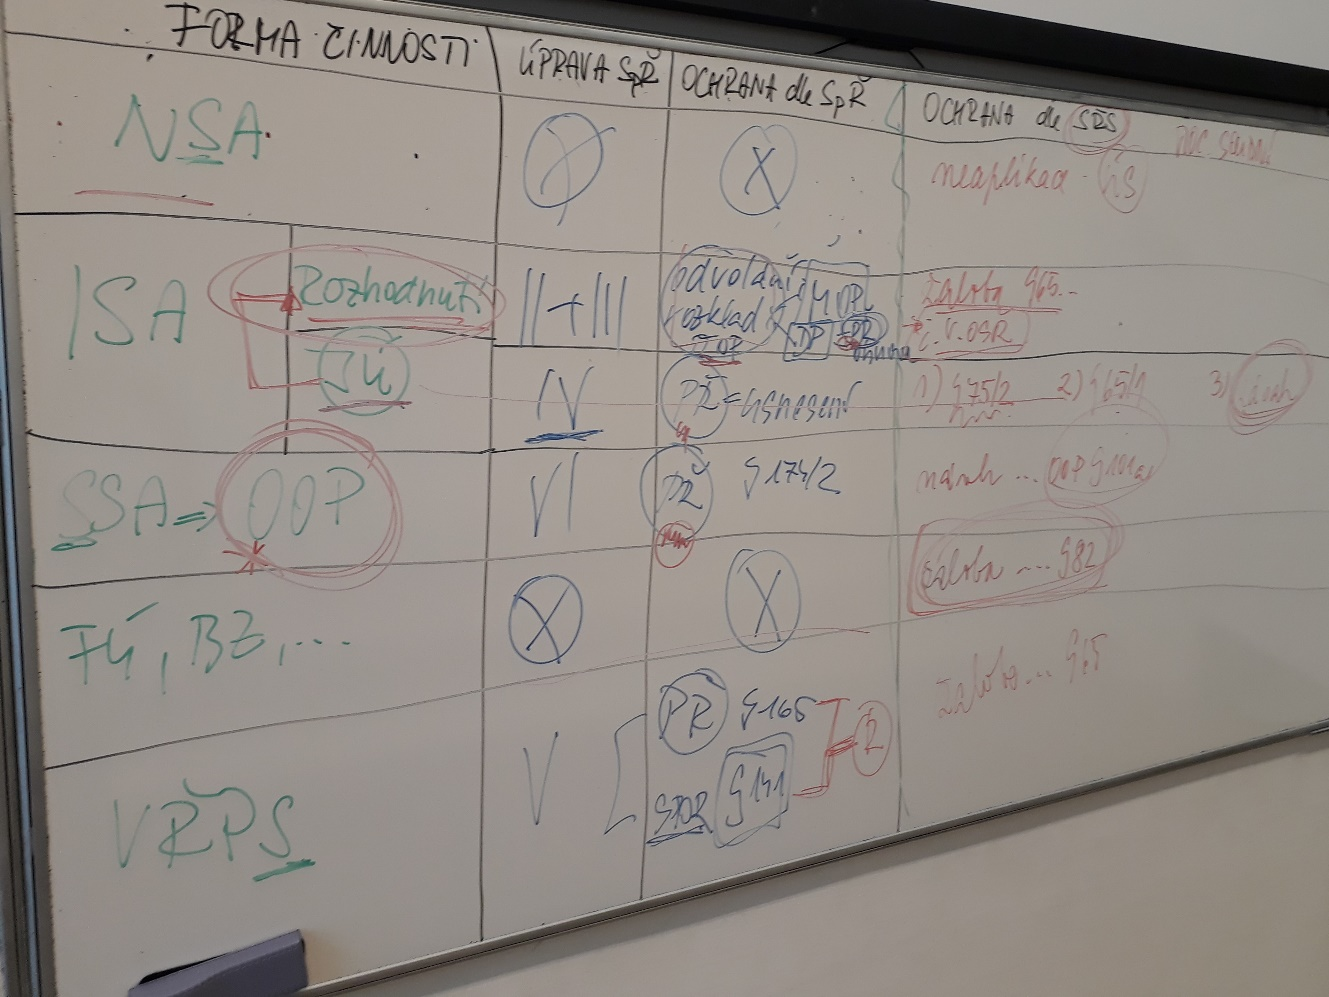 FORMA ČINNOSTI
ÚPRAVA SpŘ
OCHRANA dle SpŘ
OCHRANA dle SŘS
NSA
X
X
neaplikace ÚS
ISA
Rozhodnutí
II + III
odvolání
rozklad
OP
PŘ
žaloba §65..
č. V. OSŘ
JÚ
IV
PŘ = usnesení
1) §75/2
2) §65/1
3)
SSA => OOP
VI
PŘ
§174/2
návrh ... OOP §101a
FÚ, BZ, ...
X
X
žaloba ... §82
VŘPS
V
PŘ §165
SPOR §141
R
žaloba ... §65